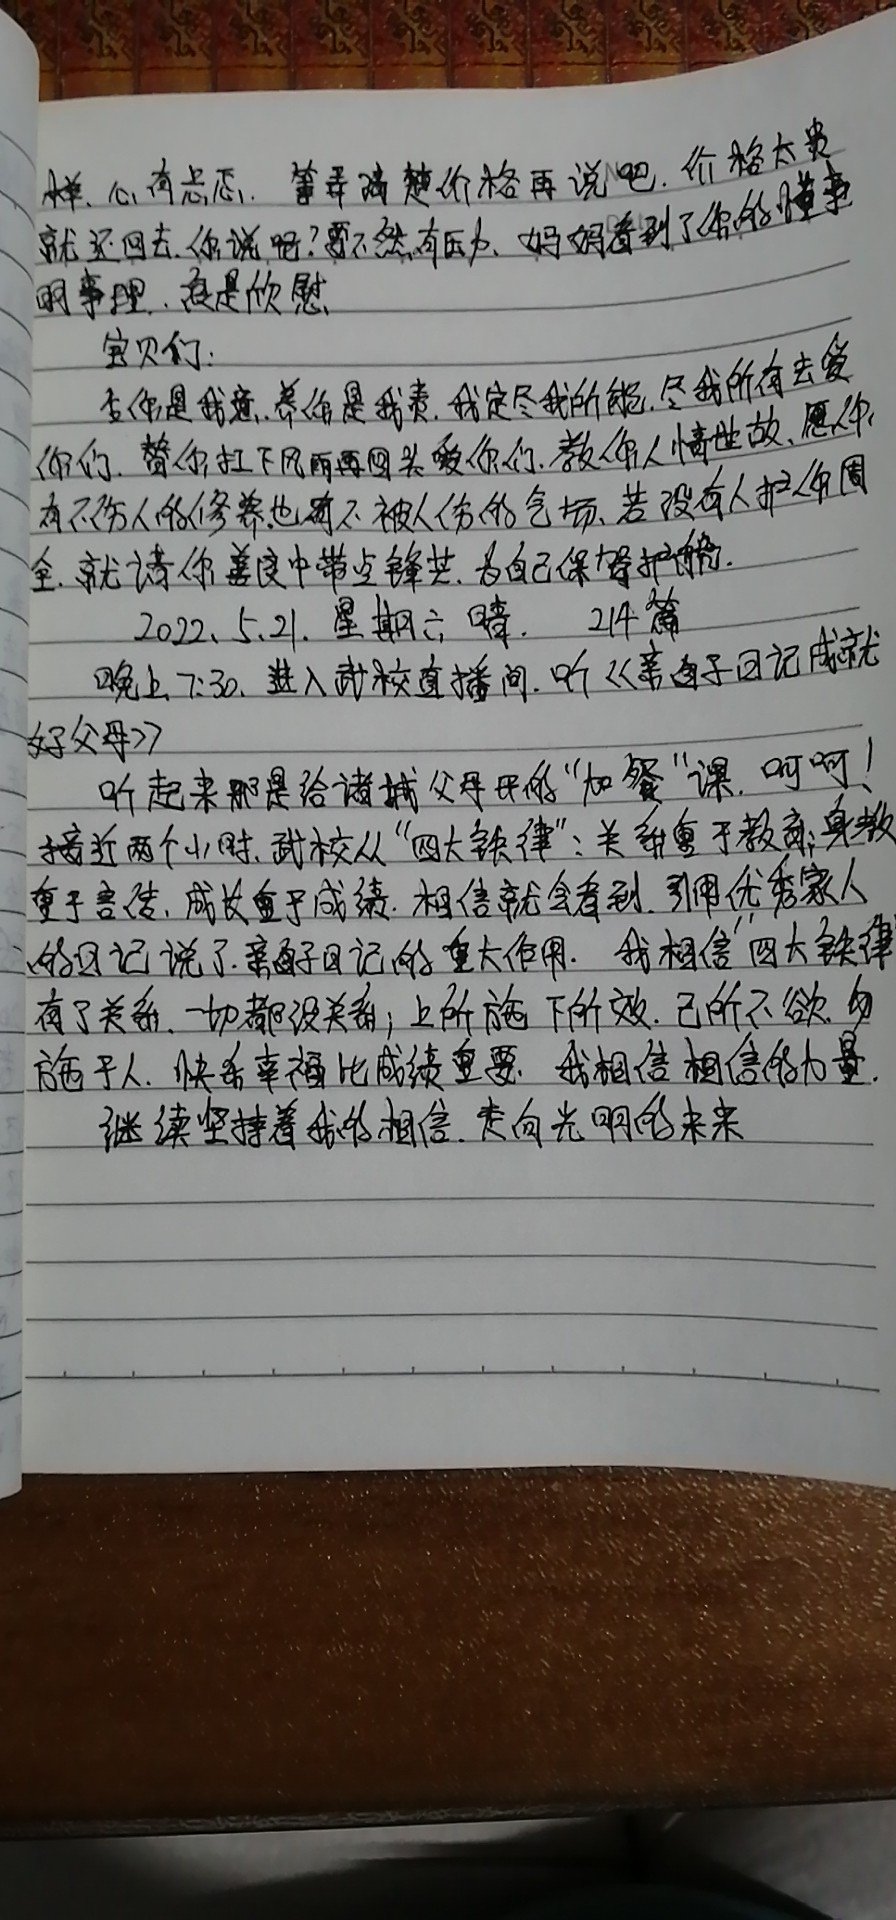 样、心有忐忑。等弄清楚价格再说吧。价格太贵
就还回去、你说呢?要不然有压力、妈妈看到了你的懂事
明事理、甚是欣慰、
宝贝们:
生你是我意、养你是我责、我定尽我所能、尽我所有去爱
你们、替你扛下风雨再回头爱你们、教你人情世故、愿你、
有不伤人的修养也有不被人伤的气场、若没有人护你周
全、就请你善良中带点锋芒、为自己保驾护航.
2022、5.21. 星期六 晴. 214篇
晚上7:30、进入武校直播间、听《亲子日记成就
好父母》
听起来那是给诸城父母开的"加餐"课、呵呵!
接近两个小时、武校从"四大铁律":关系重于教育;身教
重于言传、成长重于成绩、相信就会看到、引用优秀家人
的日记说了亲子日记的重大作用. 我相信"四大铁律
有了关系、一切都没关系;上所施下所效、己所不欲、勿
施于人、快乐幸福比成绩重要、我相信相信的力量.
继续坚持着我的相信、走向光明的未来